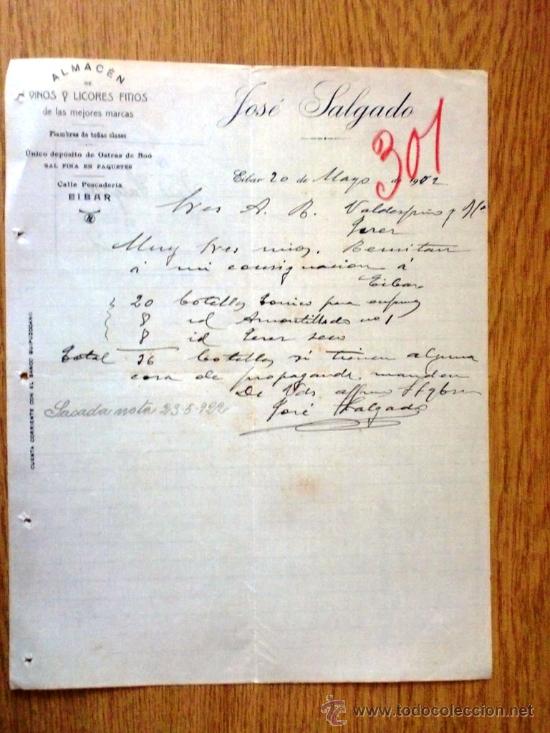 ALMACÉN
DE
VINOS Y LICORES FINOS
de las mejores marcas
Fiambres de todas clases
Único depósito de Ostras de Roó
SAL FINA EN PAQUETES
Calle Pescadería
EIBAR
José Salgado
301
Eibar 20 de Mayo de 1922
Sres A. R. Valdespino y Hº
Jerez
Muy Sres mios. Remitan
á mi consignacion á
Eibar
20 botellas tonico para
8 id Amontillado no 1
8 id Jerez seco
Total 36 botellas si tienen alguna
cosa de propaganda manden
De Vds affmo
José Salgado
Sacada nota 23-5-922
CUENTA CORRIENTE CON EL BANCO GUIPUZCOANO
www.todocoleccion.net